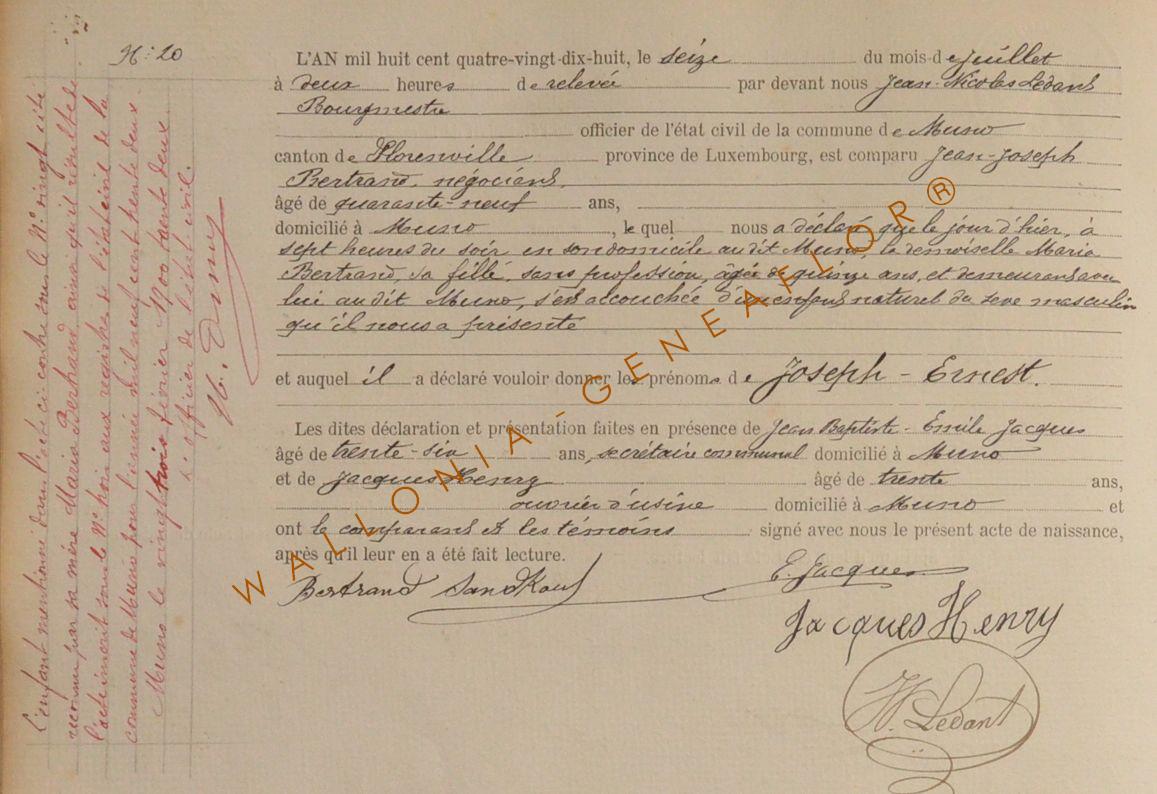 N: 20
L'AN mil huit cent quatre-vingt-dix-huit, le seize du mois de juillet
à deux heures de relevée par devant nous Jean-Nicolas Ledant
Bourgmestre
officier de l'état civil de la commune de Muno
canton de Florenville province de Luxembourg, est comparu Jean-Joseph
Bertrand, négociant,
âgé de quarante-neuf ans,
domicilié à Muno, le quel nous a déclaré que le jour d'hier, à
sept heures du soir en son domicile au dit Muno, la demoiselle Maria
Bertrand, sa fille, sans profession, âgée de quinze ans, et demeurant avec
lui au dit Muno, s'est accouchée d'un enfant naturel du sexe masculin
qu'il nous a présenté
et auquel il a déclaré vouloir donner les prénoms de Joseph-Ernest.
Les dites déclaration et présentation faites en présence de Jean Baptiste-Emile Jacques
âgé de trente-six ans, secrétaire communal domicilié à Muno
et de Jacques Henry âgé de trente ans,
ouvrier d'usine domicilié à Muno et
ont le comparant et les témoins signé avec nous le présent acte de naissance,
après qu'il leur en a été fait lecture.
Bertrand E. Jacques
Jacques Henry
Ledant
L'enfant mentionné dans l'acte ci contre sous le N° vingt a été
reconnu par sa mère Maria Bertrand ainsi qu'il résulte de
l'acte inscrit sous le N° trois aux registres de l'état civil de la
commune de Muno pour l'année mil neuf cent trente deux.
Muno le vingt trois février 1900 trente deux
L'officier de l'état civil.
WALLONIA-GENEAFLOR®